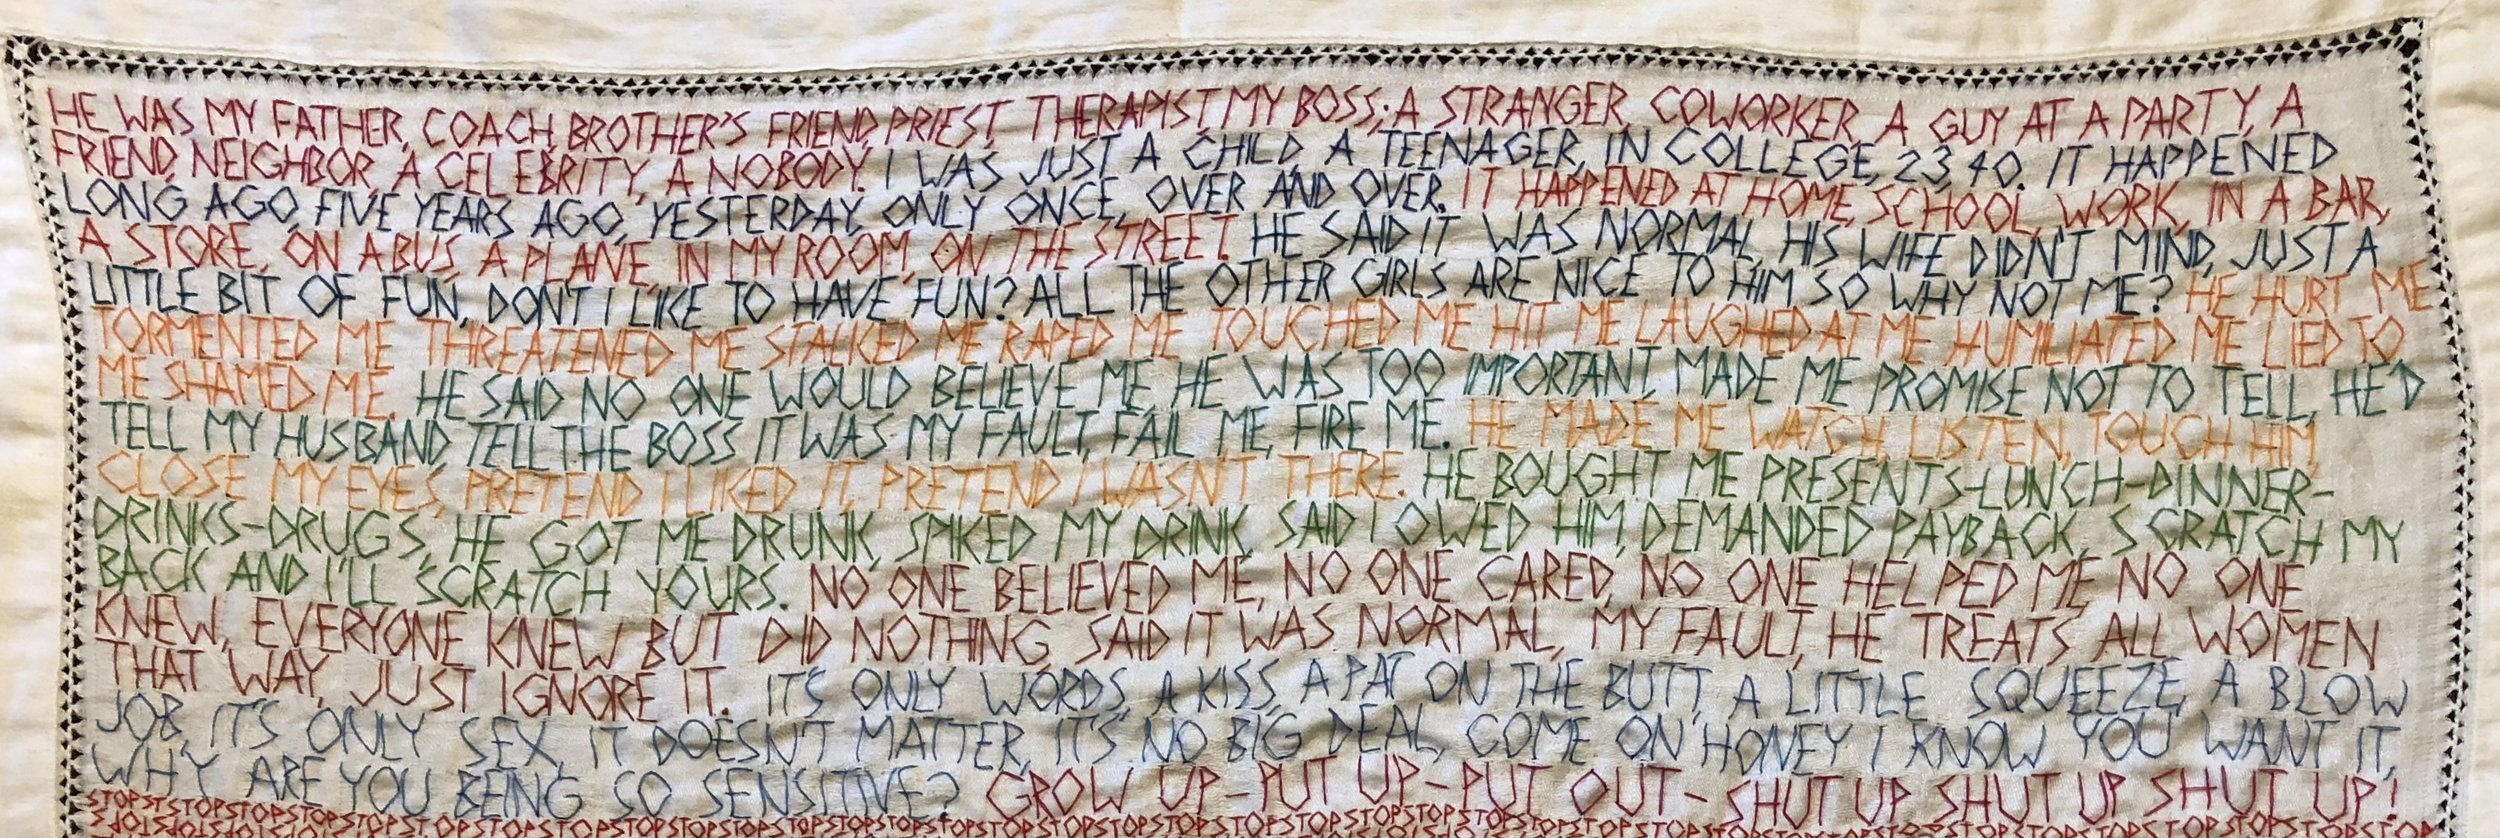 HE WAS MY FATHER, COACH, BROTHER'S FRIEND, PRIEST, THERAPIST MY BOSS; A STRANGER, COWORKER, A GUY AT A PARTY, A
FRIEND, NEIGHBOR, A CELEBRITY, A NOBODY. I WAS JUST A CHILD, A TEENAGER, IN COLLEGE, 23, 40. IT HAPPENED
LONG AGO, FIVE YEARS AGO, YESTERDAY, ONLY ONCE, OVER AND OVER. IT HAPPENED AT HOME, SCHOOL, WORK, IN A BAR,
A STORE, ON A BUS, A PLANE, IN MY ROOM, ON THE STREET. HE SAID IT WAS NORMAL, HIS WIFE DIDN'T MIND, JUST A
LITTLE BIT OF FUN, DON'T I LIKE TO HAVE FUN? ALL THE OTHER GIRLS ARE NICE TO HIM SO WHY NOT ME? HE HURT ME
TORMENTED ME THREATENED ME STALKED ME RAPED ME TOUCHED ME HIT ME LAUGHED AT ME HUMILIATED ME LIED TO
ME SHAMED ME. HE SAID NO ONE WOULD BELIEVE ME HE WAS TOO IMPORTANT, MADE ME PROMISE NOT TO TELL, HE'D
TELL MY HUSBAND, TELL THE BOSS IT WAS MY FAULT, FAIL ME, FIRE ME. HE MADE ME WATCH, LISTEN, TOUCH HIM,
CLOSE MY EYES, PRETEND I LIKED IT, PRETEND I WASN'T THERE. HE BOUGHT ME PRESENTS-LUNCH-DINNER-
DRINKS-DRUGS, HE GOT ME DRUNK, SPIKED MY DRINK, SAID I OWED HIM, DEMANDED PAYBACK, SCRATCH MY
BACK AND I'LL SCRATCH YOURS. NO ONE BELIEVED ME, NO ONE CARED, NO ONE HELPED ME, NO ONE
KNEW, EVERYONE KNEW BUT DID NOTHING, SAID IT WAS NORMAL, MY FAULT, HE TREATS ALL WOMEN
THAT WAY, JUST IGNORE IT. IT'S ONLY WORDS, A KISS, A PAT ON THE BUTT, A LITTLE SQUEEZE, A BLOW
JOB, IT'S ONLY SEX, IT DOESN'T MATTER, IT'S NO BIG DEAL, COME ON HONEY I KNOW YOU WANT IT,
WHY ARE YOU BEING SO SENSITIVE? GROW UP-PUT UP-PUT OUT-SHUT UP SHUT UP SHUT UP!